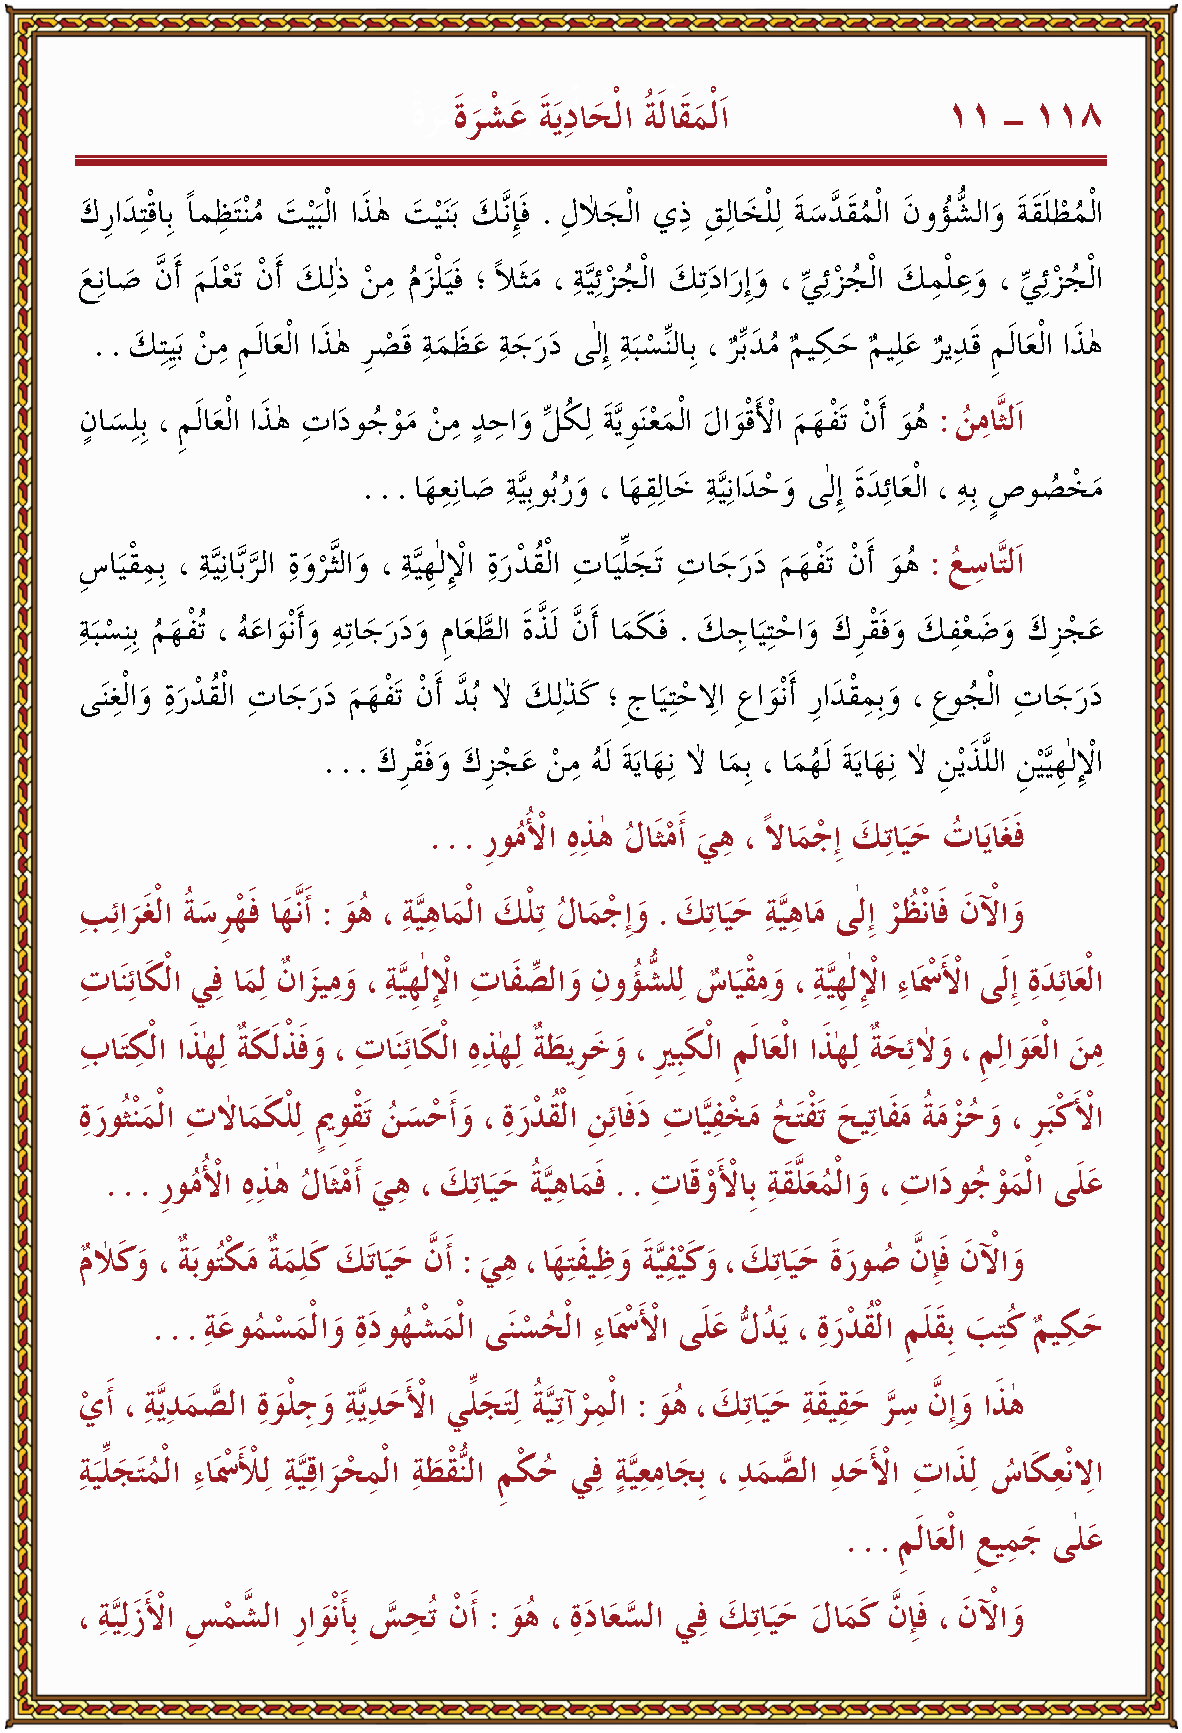 ١١٨ – ١١ اَلْمَقَالَةُ الْحَادِيَةَ عَشْرَةَ
الْمُطْلَقَةَ وَالشُّؤُونَ الْمُقَدَّسَةَ لِلْخَالِقِ ذِي الْجَلاٰلِ . فَإِنَّكَ بَنَيْتَ هٰذَا الْبَيْتَ مُنْتَظِماً بِاقْتِدَارِكَ
الْجُزْئِيِّ ، وَعِلْمِكَ الْجُزْئِيِّ ، وَإِرَادَتِكَ الْجُزْئِيَّةِ ، مَثَلاً ؛ فَيَلْزَمُ مِنْ ذٰلِكَ أَنْ تَعْلَمَ أَنَّ صَانِعَ
هٰذَا الْعَالَمِ قَدِيرٌ عَلِيمٌ حَكِيمٌ مُدَبِّرٌ ، بِالنِّسْبَةِ إِلٰى دَرَجَةِ عَظَمَةِ قَصْرِ هٰذَا الْعَالَمِ مِنْ بَيِتِكَ . .
اَلثَّامِنُ : هُوَ أَنْ تَفْهَمَ الْأَقْوَالَ الْمَعْنَوِيَّةَ لِكُلِّ وَاحِدٍ مِنْ مَوْجُودَاتِ هٰذَا الْعَالَمِ ، بِلِسَانٍ
مَخْصُوصٍ بِهِ ، الْعَائِدَةَ إِلٰى وَحْدَانِيَّةِ خَالِقِهَا ، وَرُبُوبِيَّةِ صَانِعِهَا . . .
اَلتَّاسِعُ : هُوَ أَنْ تَفْهَمَ دَرَجَاتِ تَجَلِّيَاتِ الْقُدْرَةِ الْإِلٰهِيَّةِ ، وَالثَّرْوَةِ الرَّبَّانِيَّةِ ، بِمِقْيَاسِ
عَجْزِكَ وَضَعْفِكَ وَفَقْرِكَ وَاحْتِيَاجِكَ . فَكَمَا أَنَّ لَذَّةَ الطَّعَامِ وَدَرَجَاتِهِ وَأَنْوَاعَهُ ، تُفْهَمُ بِنِسْبَةِ
دَرَجَاتِ الْجُوعِ ، وَبِمِقْدَارِ أَنْوَاعِ الِاحْتِيَاجِ ؛ كَذٰلِكَ لاٰ بُدَّ أَنْ تَفْهَمَ دَرَجَاتِ الْقُدْرَةِ وَالْغِنَى
الْإِلٰهِيَّيْنِ اللَّذَيْنِ لاٰ نِهَايَةَ لَهُمَا ، بِمَا لاٰ نِهَايَةَ لَهُ مِنْ عَجْزِكَ وَفَقْرِكَ . . .
فَغَايَاتُ حَيَاتِكَ إِجْمَالاً ، هِيَ أَمْثَالُ هٰذِهِ الْأُمُورِ . . .
وَالْآنَ فَانْظُرْ إِلٰى مَاهِيَّةِ حَيَاتِكَ . وَإِجْمَالُ تِلْكَ الْمَاهِيَّةِ ، هُوَ : أَنَّهَا فَهْرِسَةُ الْغَرَائِبِ
الْعَائِدَةِ إِلَى الْأَسْمَاءِ الْإِلٰهِيَّةِ ، وَمِقْيَاسٌ لِلشُّؤُونِ وَالصِّفَاتِ الْإِلٰهِيَّةِ ، وَمِيزَانٌ لِمَا فِي الْكَائِنَاتِ
مِنَ الْعَوَالِمِ ، وَلاٰئِحَةٌ لِهٰذَا الْعَالَمِ الْكَبِيرِ ، وَخَرِيطَةٌ لِهٰذِهِ الْكَائِنَاتِ ، وَفَذْلَكَةٌ لِهٰذَا الْكِتَابِ
الْأَكْبَرِ ، وَحُزْمَةُ مَفَاتِيحَ تَفْتَحُ مَخْفِيَّاتِ دَفَائِنِ الْقُدْرَةِ ، وَأَحْسَنُ تَقْوِيمٍ لِلْكَمَالاٰتِ الْمَنْثُورَةِ
عَلَى الْمَوْجُودَاتِ ، وَالْمُعَلَّقَةِ بِالْأَوْقَاتِ . . فَمَاهِيَّةُ حَيَاتِكَ ، هِيَ أَمْثَالُ هٰذِهِ الْأُمُورِ . . .
وَالْآنَ فَإِنَّ صُورَةَ حَيَاتِكَ ، وَكَيْفِيَّةَ وَظِيفَتِهَا ، هِيَ : أَنَّ حَيَاتَكَ كَلِمَةٌ مَكْتُوبَةٌ ، وَكَلاٰمٌ
حَكِيمٌ كُتِبَ بِقَلَمِ الْقُدْرَةِ ، يَدُلُّ عَلَى الْأَسْمَاءِ الْحُسْنَى الْمَشْهُودَةِ وَالْمَسْمُوعَةِ . . .
هٰذَا وَإِنَّ سِرَّ حَقِيقَةِ حَيَاتِكَ ، هُوَ : الْمِرْآتِيَّةُ لِتَجَلِّي الْأَحَدِيَّةِ وَجِلْوَةِ الصَّمَدِيَّةِ ، أَيْ
الِانْعِكَاسُ لِذَاتِ الْأَحَدِ الصَّمَدِ ، بِجَامِعِيَّةٍ فِي حُكْمِ النُّقْطَةِ الْمِحْرَاقِيَّةِ لِلْأَسْمَاءِ الْمُتَجَلِّيَةِ
عَلٰى جَمِيعِ الْعَالَمِ . . .
وَالْآنَ ، فَإِنَّ كَمَالَ حَيَاتِكَ فِي السَّعَادَةِ ، هُوَ : أَنْ تُحِسَّ بِأَنْوَارِ الشَّمْسِ الْأَزَلِيَّةِ ،